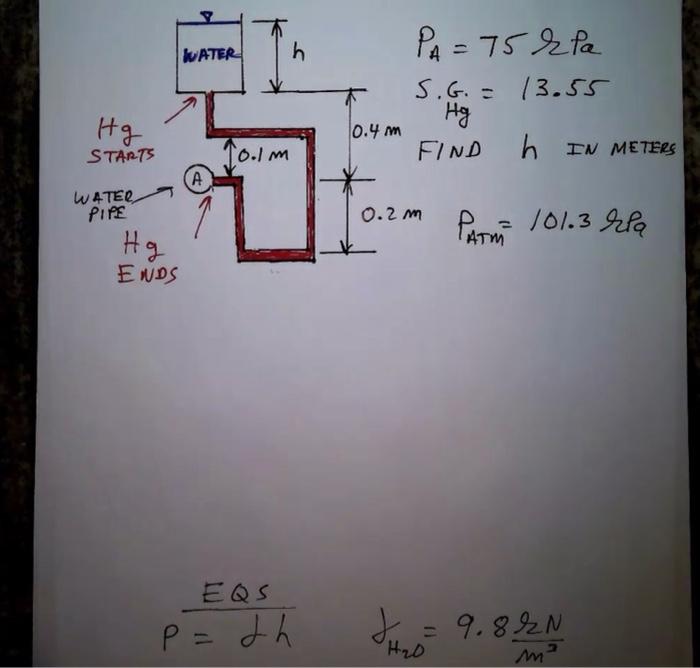 WATER
h
P_A = 75 kPa
S.G. Hg = 13.55
Hg
STARTS
0.1 m
0.4 m
FIND h IN METERS
A
WATER
PIPE
0.2 m
P_ATM = 101.3 kPa
Hg
ENDS
EQS
P = γh
γ_H2O = 9.8 kN/m³